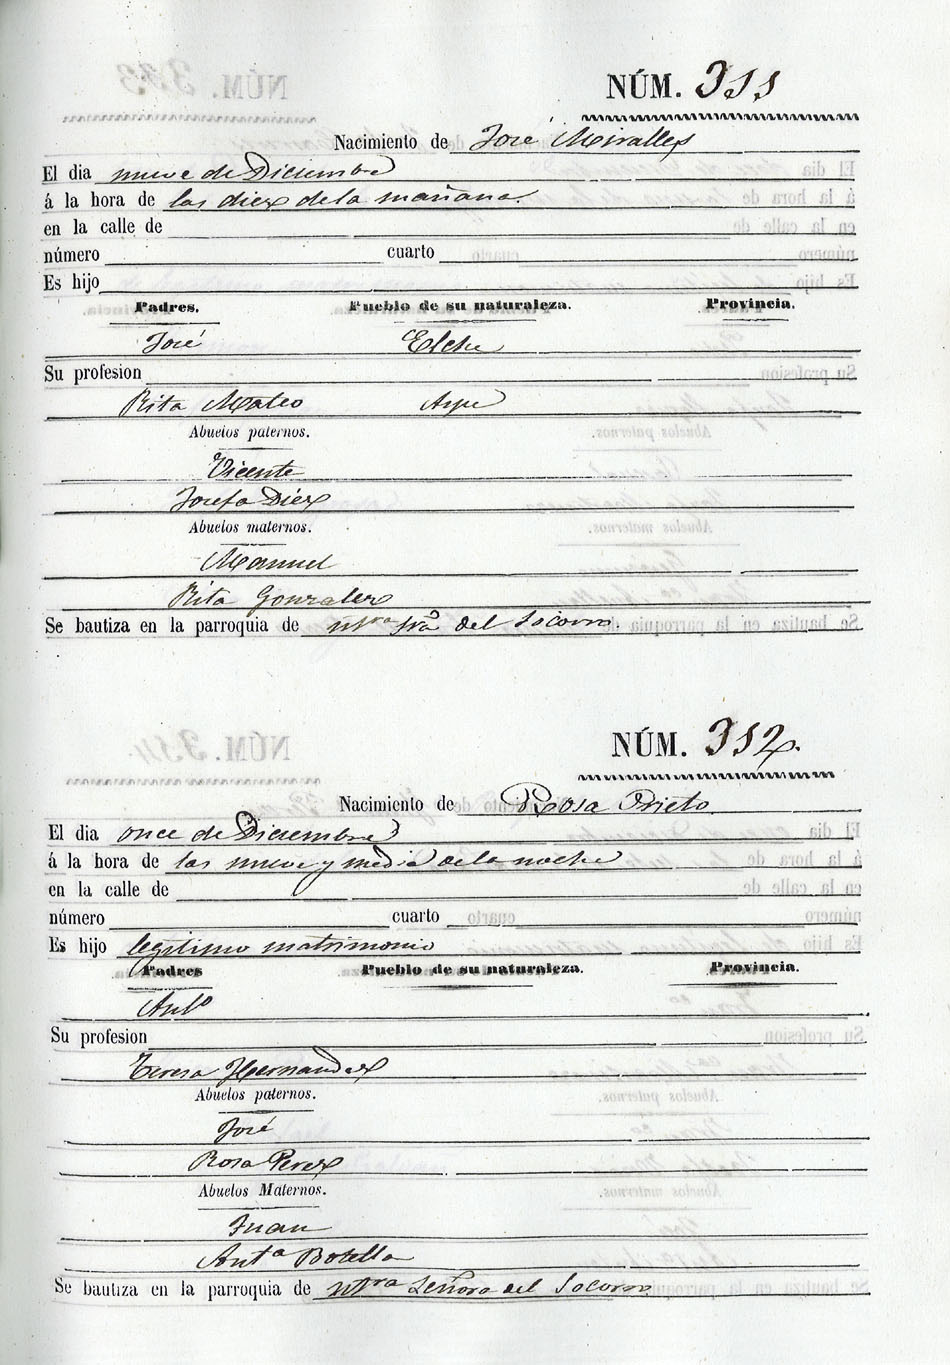 NÚM. 311
Nacimiento de José Miralles
El dia nueve de Diciembre
á la hora de las diez de la mañana
en la calle de
número cuarto
Es hijo
Padres. Pueblo de su naturaleza. Provincia.
José Elche
Su profesion
Rita Mateo Aspe
Abuelos paternos.
Vicente
Josefa Diez
Abuelos maternos.
Manuel
Rita Gonzalez
Se bautiza en la parroquia de Ntra Sra del Socorro.
NÚM. 312.
Nacimiento de Rosa Prieto
El dia once de Diciembre
á la hora de las nueve y media de la noche
en la calle de
número cuarto
Es hijo legitimo matrimonio
Padres Pueblo de su naturaleza. Provincia.
Anto
Su profesion
Teresa Hernandez
Abuelos paternos.
José
Rosa Perez
Abuelos Maternos.
Juan
Anta Botella
Se bautiza en la parroquia de Ntra Señora del Socorro